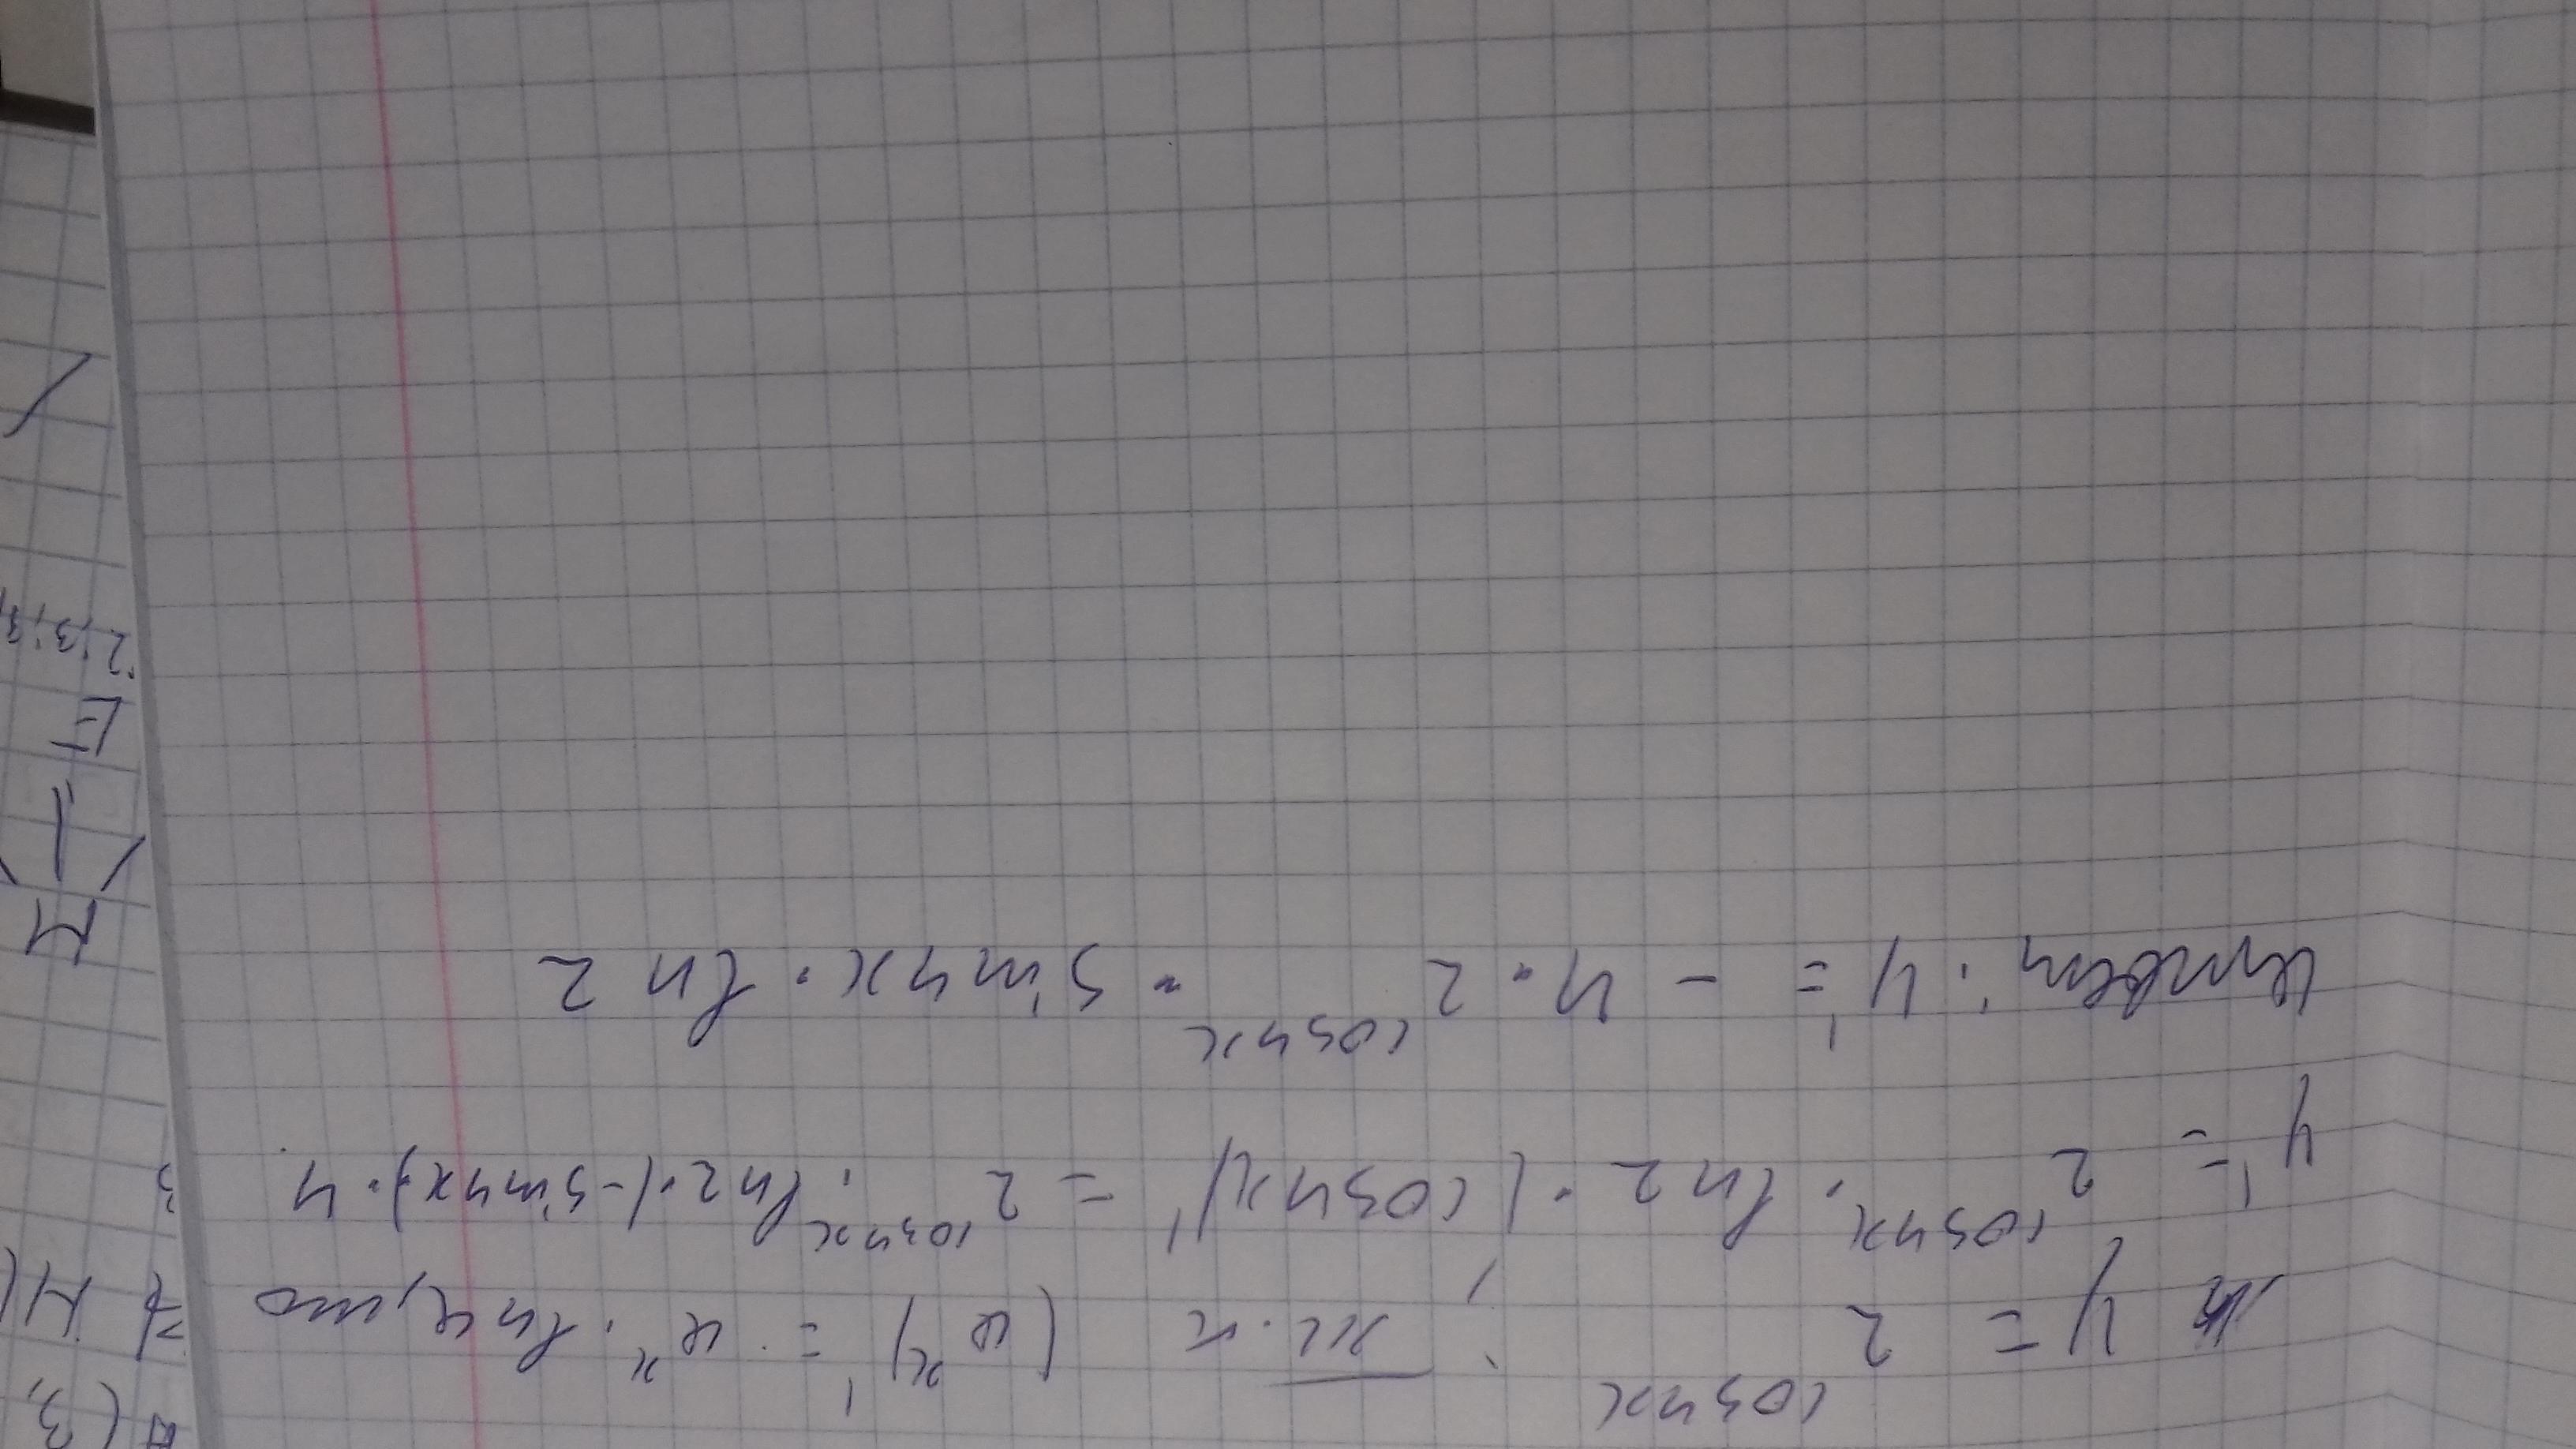 y = 2^cos4x ; т.к (a^x)' = a^x · ln a, то
y' = 2^cos4x · ln2 · (cos4x)' = 2^cos4x · ln2 · (-sin4x) · 4
Ответ: y' = - 4 · 2^cos4x · sin4x · ln 2
M
E
2; 3; 3